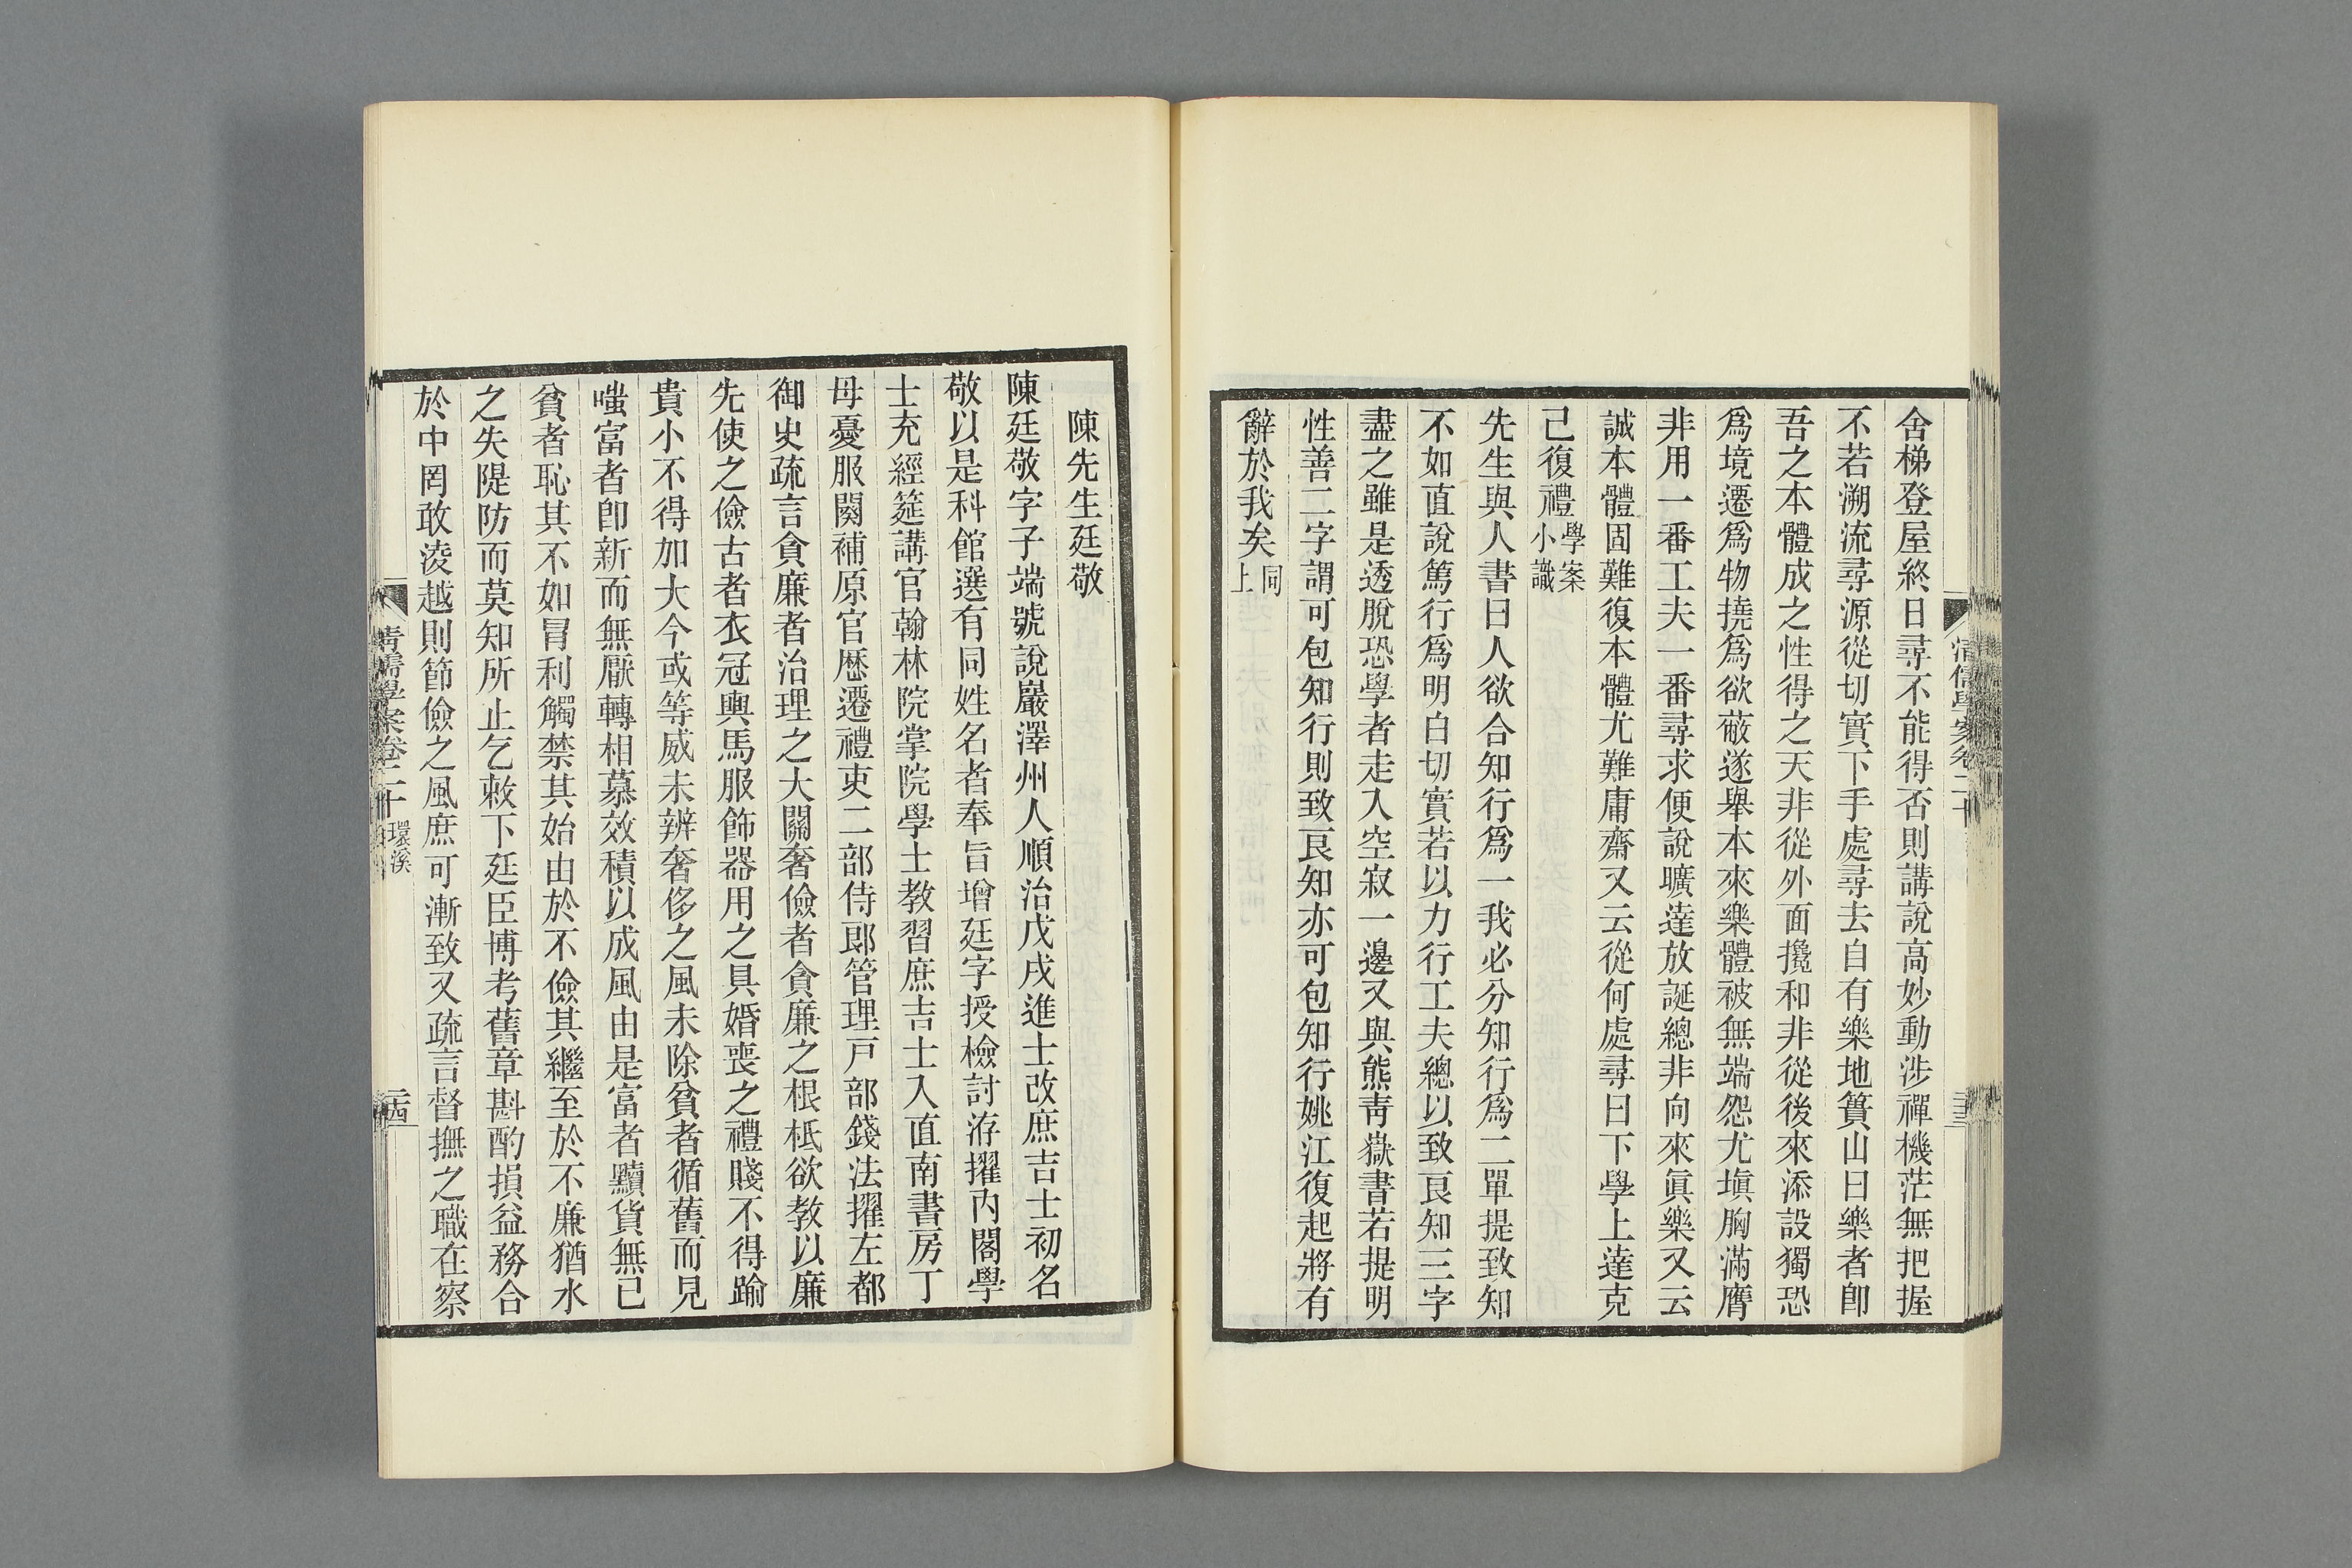 舍梯登屋終日尋不能得否則講說高妙動涉禪機茫無把握
不若溯流尋源從切實下手處尋去自有樂地簣山曰樂者卽
吾之本體成之性得之天非從外面攙和非從後來添設獨恐
爲境遷爲物撓爲欲蔽遂舉本來樂體被無端怨尤塡胸滿膺
非用一番工夫一番尋求便說曠達放誕總非向來眞樂又云
誠本體固難復本體尤難庸齋又云從何處尋曰下學上達克
己復禮學案小識
先生與人書曰人欲合知行爲一我必分知行爲二單提致知
不如直說篤行爲明白切實若以力行工夫總以致良知三字
盡之雖是透脫恐學者走入空寂一邊又與熊靑嶽書若提明
性善二字謂可包知行則致良知亦可包知行姚江復起將有
辭於我矣同上
陳先生廷敬
陳廷敬字子端號說巖澤州人順治戊戌進士改庶吉士初名
敬以是科館選有同姓名者奉旨增廷字授檢討洊擢內閣學
士充經筵講官翰林院掌院學士敎習庶吉士入直南書房丁
母憂服闋補原官歷遷禮吏二部侍郎管理戶部錢法擢左都
御史疏言貪廉者治理之大關奢儉者貪廉之根柢欲敎以廉
先使之儉古者衣冠輿馬服飾器用之具婚喪之禮賤不得踰
貴小不得加大今或等威未辨奢侈之風未除貧者循舊而見
嗤富者卽新而無厭轉相慕效積以成風由是富者黷貨無已
貧者恥其不如冒利觸禁其始由於不儉其繼至於不廉猶水
之失隄防而莫知所止乞敕下廷臣博考舊章斟酌損益務合
於中罔敢淩越則節儉之風庶可漸致又疏言督撫之職在察
清儒學案卷二十 環溪